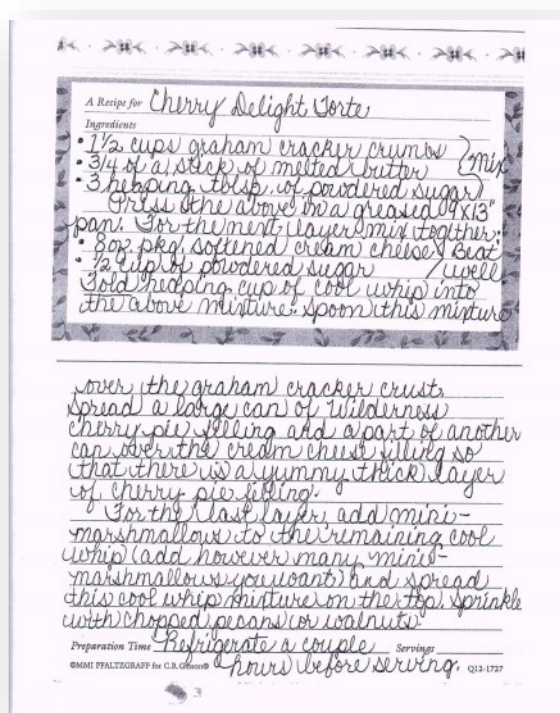 A Recipe for Cherry Delight Torte
Ingredients
• 1 1/2 cups graham cracker crumbs
• 3/4 of a stick of melted butter } mix
• 3 heaping tblsp. of powdered sugar
Press the above in a greased 9x13"
pan. For the next layer mix together:
• 8 oz. pkg. softened cream cheese } Beat
• 1/2 cup of powdered sugar } well
Fold heaping cup of cool whip into
the above mixture. Spoon this mixture
over the graham cracker crust.
Spread a large can of Wilderness
cherry pie filling and a part of another
can over the cream cheese filling so
that there is a yummy thick layer
of cherry pie filling.
For the last layer, add mini-
marshmallows to the remaining cool
whip (add however many mini-
marshmallows you want) and spread
this cool whip mixture on the top. Sprinkle
with chopped pecans or walnuts.
Preparation Time Refrigerate a couple Servings
©MMI PFALTZGRAFF for C.R. Gibson® hours before serving. Q12-1727